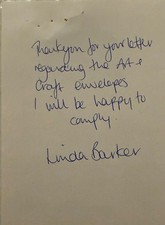 Thankyou for your letter
regarding the Art &
Craft envelopes
I will be happy to
comply.
Linda Barker